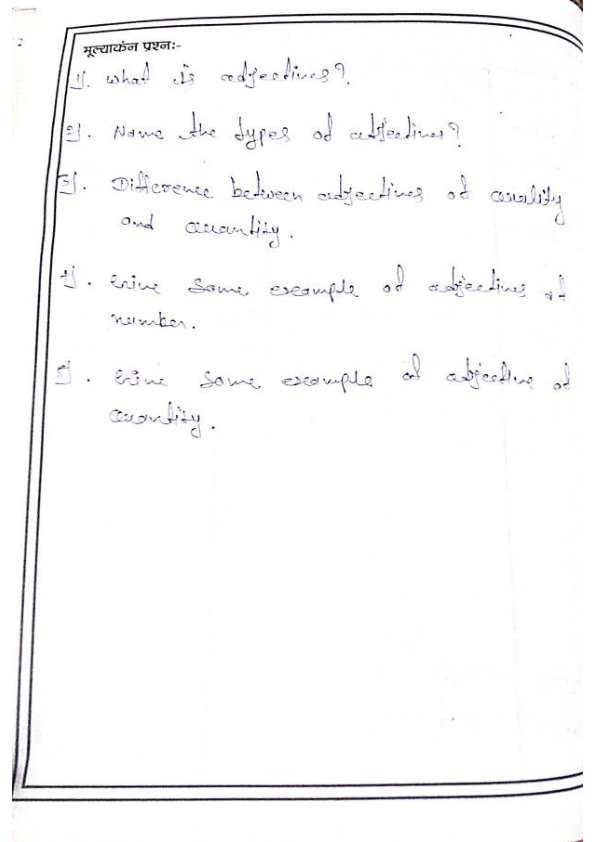 मूल्याकंन प्रश्नः-
1). what is adjectives?.
2). Name the types of adjectives?
3). Difference between adjectives of quality
and quantity.
4). Give some example of adjectives of
number.
5). Give some example of adjective of
quantity.